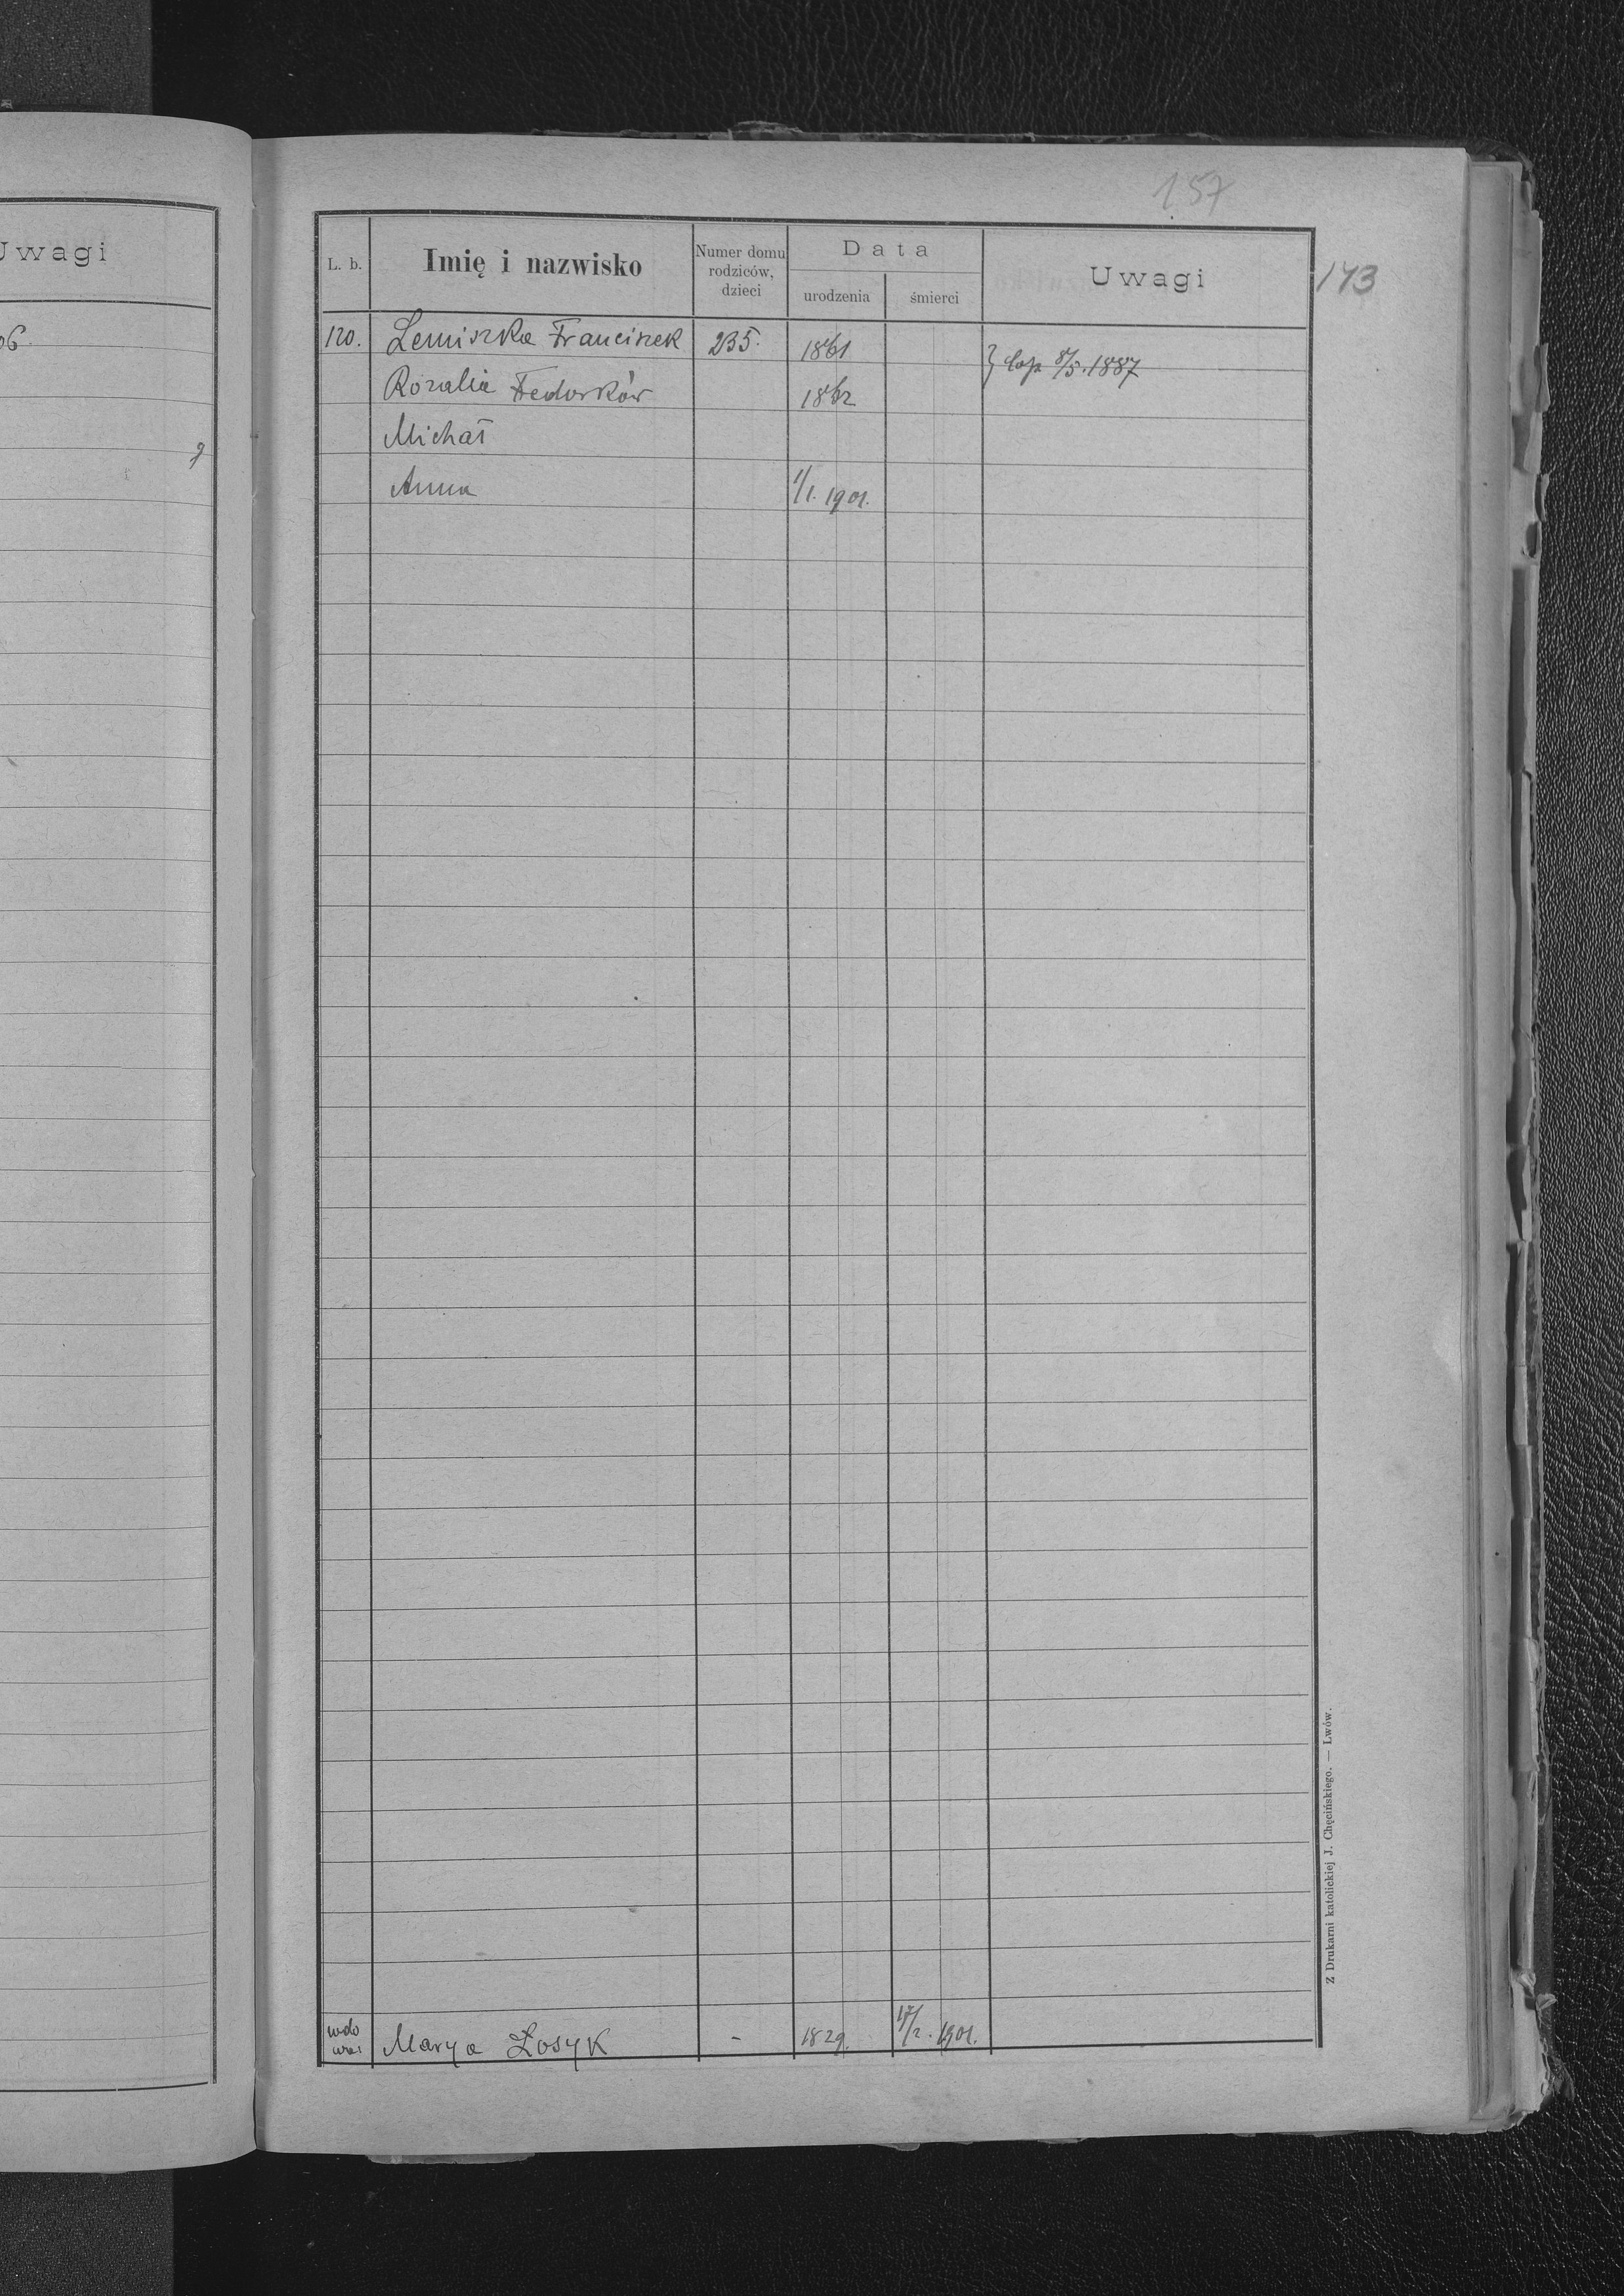 Uwagi
06.
9
157
143
L. b. Imię i nazwisko Numer domu rodziców, dzieci Data urodzenia śmierci Uwagi
120. Lemiszka Franciszek 235. 1861 } cop 8/5. 1887
Rozalia Fedorków 1862
Michał
Anna 1/1. 1901.
wdo wa Marya Łosyk - 1829. 17/2. 1901.
Z Drukarni katolickiej J. Chęcińskiego. — Lwów.